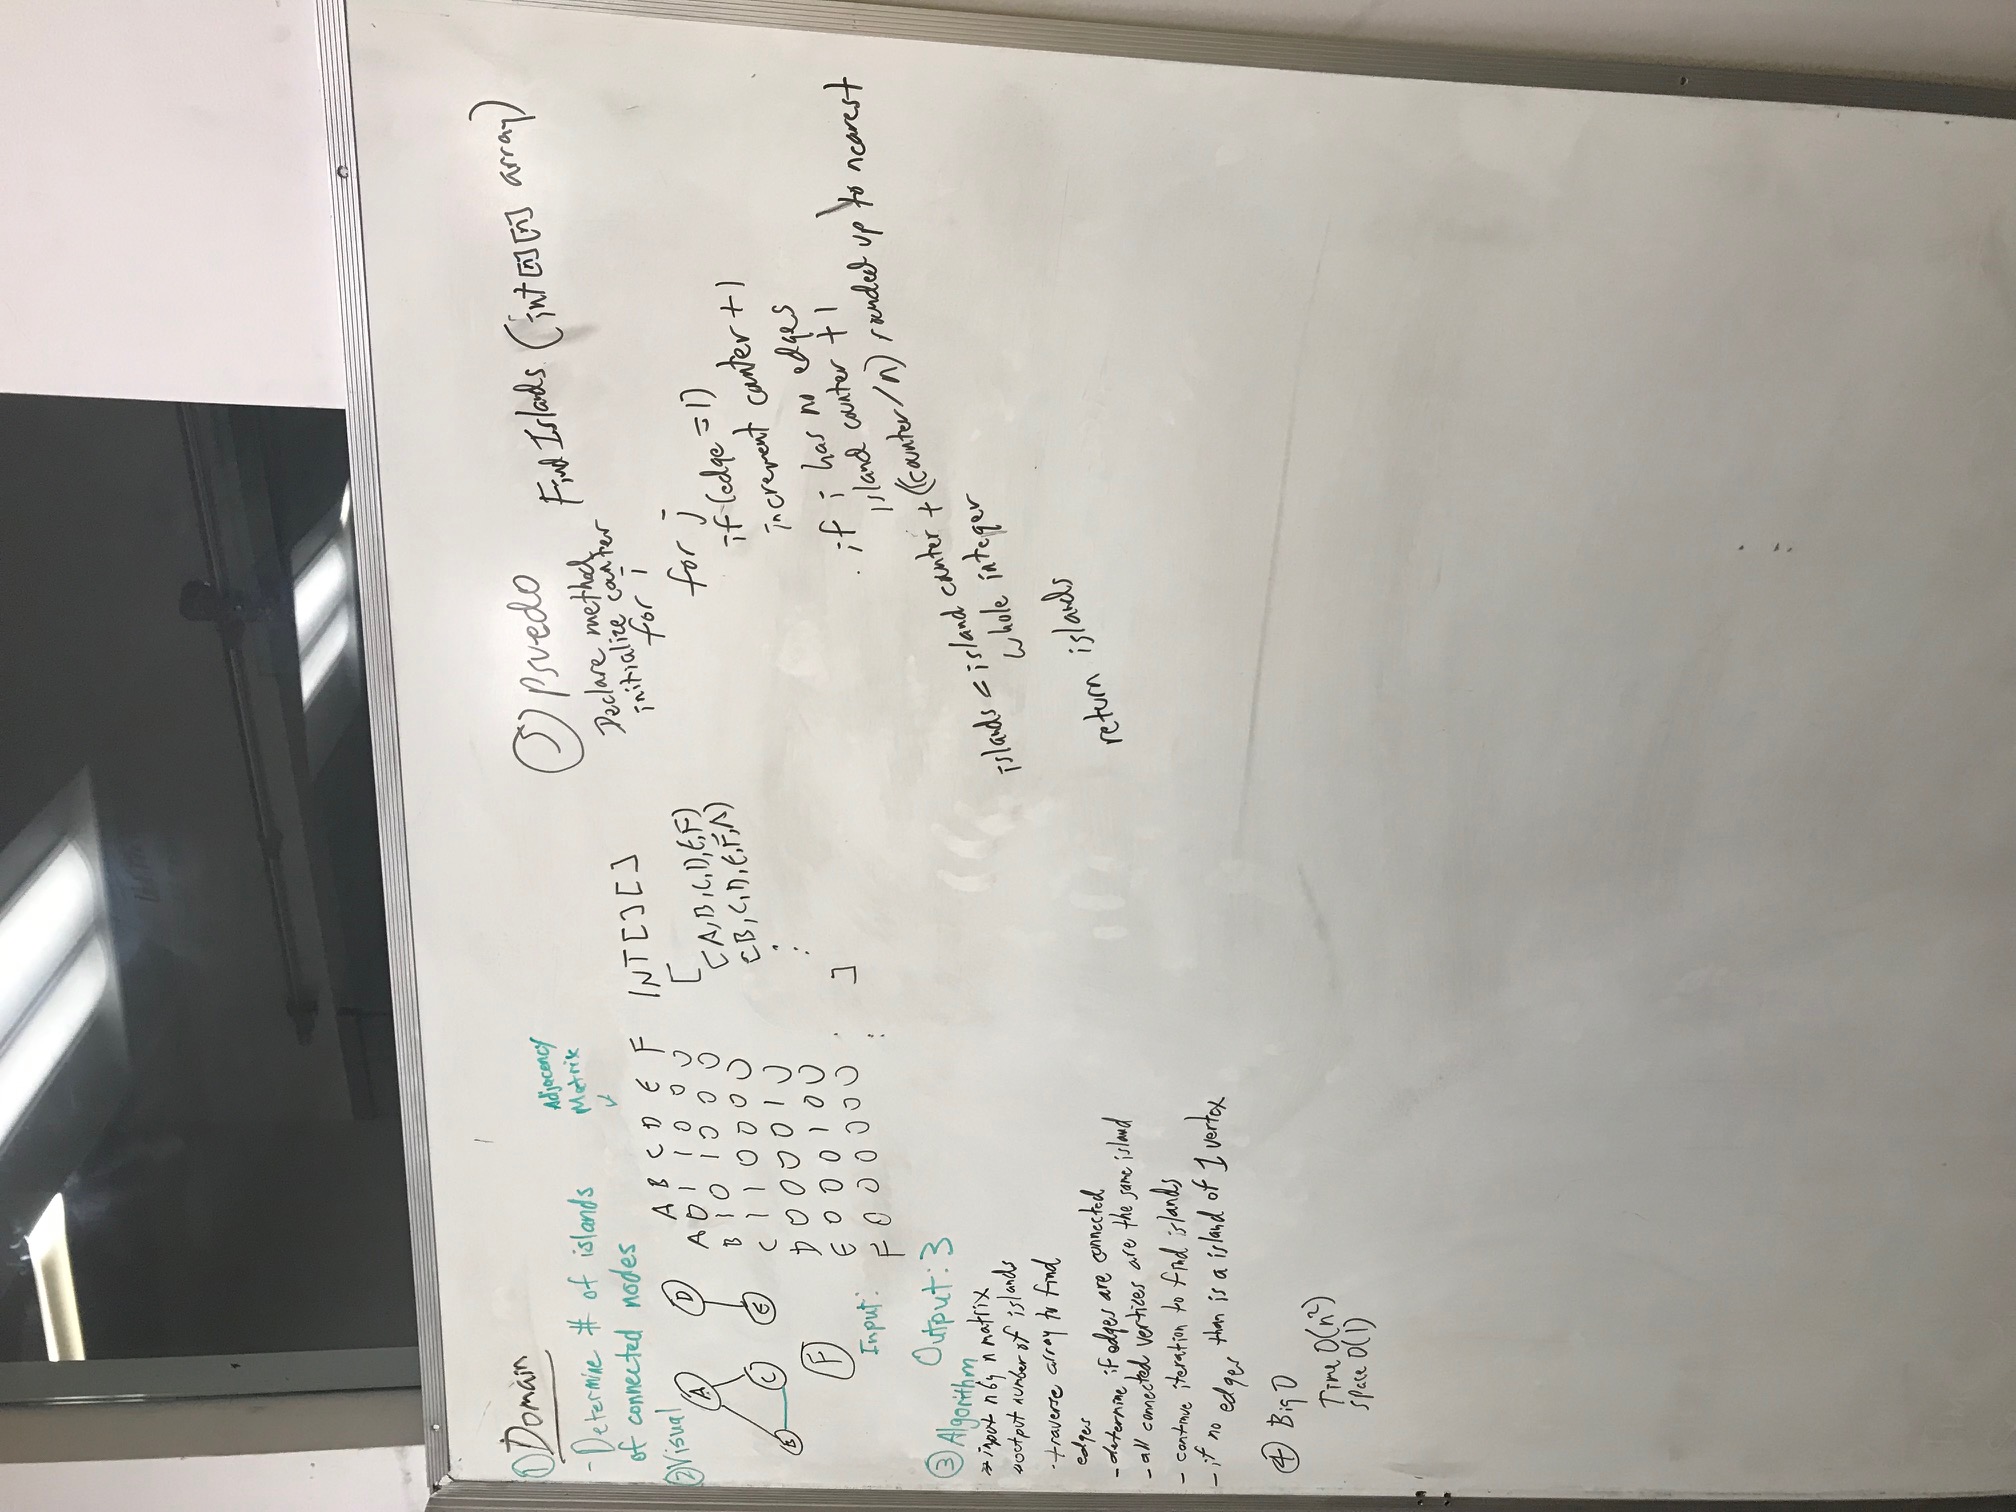 ① Domain
- Determine # of islands
of connected nodes
② Visual
A
B
C
D
E
F
Adjacency
Matrix
A B C D E F
A 0 1 1 0 0 0
B 1 0 1 0 0 0
C 1 1 0 0 0 0
D 0 0 0 0 1 0
E 0 0 0 1 0 0
F 0 0 0 0 0 0
Input:
INT[][]
[
[A,B,C,D,E,F)
[B,C,D,E,F,A)
]
Output: 3
③ Algorithm
input n by n matrix
output number of islands
- traverse array to find
edges
- determine if edges are connected
- all connected vertices are the same island
- continue iteration to find islands
- if no edges than is a island of 1 vertex
④ Big O
Time O(n²)
space O(1)
⑤ Psuedo
Declare method Find Islands (int[n][n] array)
initialize counter
for i
for j
if (edge = 1)
increment counter + 1
if i has no edges
island counter + 1
islands = island counter + ((counter/n) rounded up to nearest
whole integer
return islands